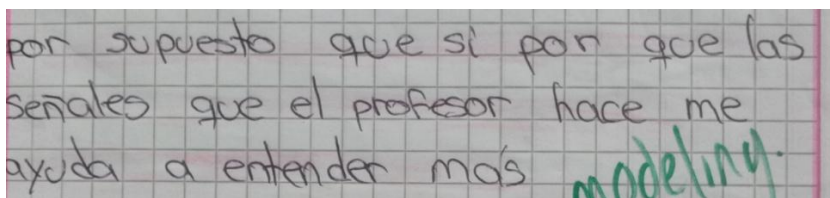 por supuesto que si por que las
señales que el profesor hace me
ayuda a entender más modeling.